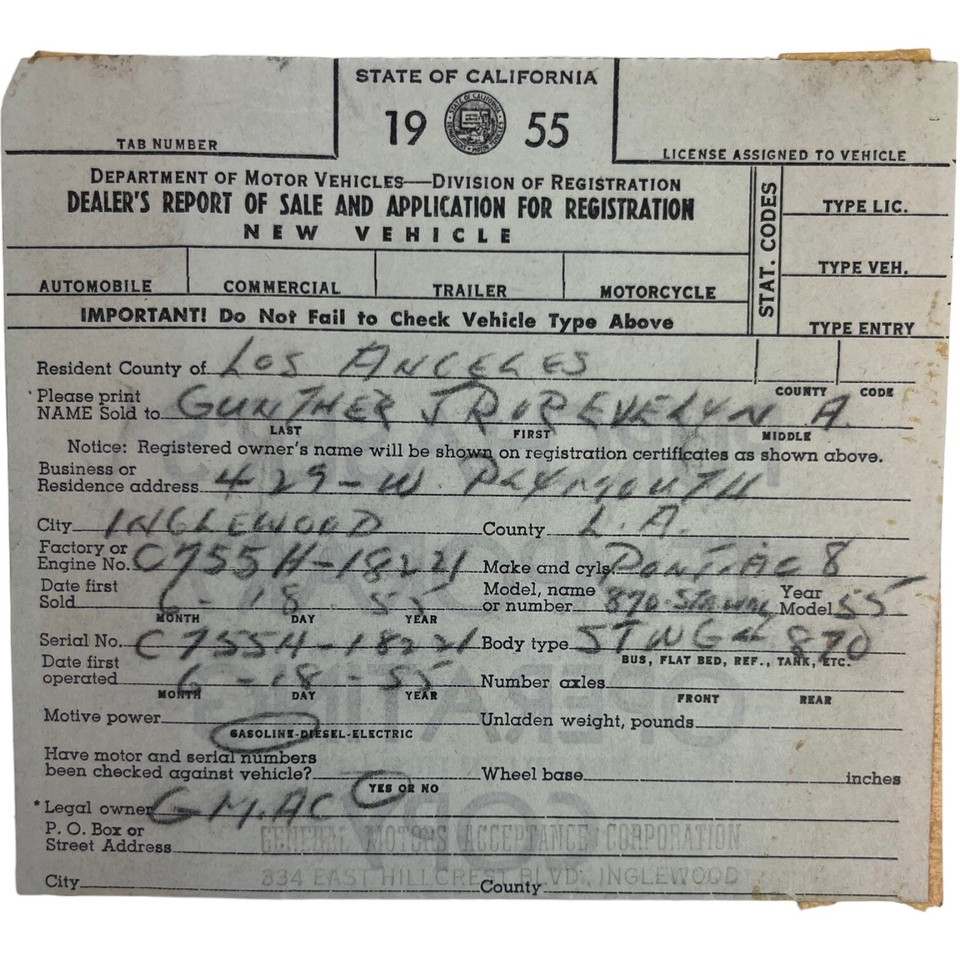 STATE OF CALIFORNIA
1955
TAB NUMBER
LICENSE ASSIGNED TO VEHICLE
DEPARTMENT OF MOTOR VEHICLES—DIVISION OF REGISTRATION
DEALER'S REPORT OF SALE AND APPLICATION FOR REGISTRATION
NEW VEHICLE
STAT. CODES
TYPE LIC.
TYPE VEH.
TYPE ENTRY
AUTOMOBILE COMMERCIAL TRAILER MOTORCYCLE
IMPORTANT! Do Not Fail to Check Vehicle Type Above
Resident County of LOS ANGELES
COUNTY CODE
Please print
NAME Sold to GUNTHER J R EVELYN A.
LAST FIRST MIDDLE
Notice: Registered owner's name will be shown on registration certificates as shown above.
Business or
Residence address 429-W PLYMOUTH
City INGLEWOOD County L.A.
Factory or
Engine No. C755H-18221 Make and cyls. PONTIAC 8
Date first
Sold 6-18 55 Model, name
or number 870 Year
Model 55
MONTH DAY YEAR
Serial No. C755H-18221 Body type STWG 870
BUS, FLAT BED, REF., TANK, ETC.
Date first
operated 6-18-55 Number axles
MONTH DAY YEAR FRONT REAR
Motive power Unladen weight, pounds
GASOLINE-DIESEL-ELECTRIC
Have motor and serial numbers
been checked against vehicle? Wheel base inches
YES OR NO
*Legal owner G M.AC
P. O. Box or
Street Address GENERAL MOTORS ACCEPTANCE CORPORATION
334 EAST HILLCREST BLVD. INGLEWOOD
City County
OPERATING
COPY